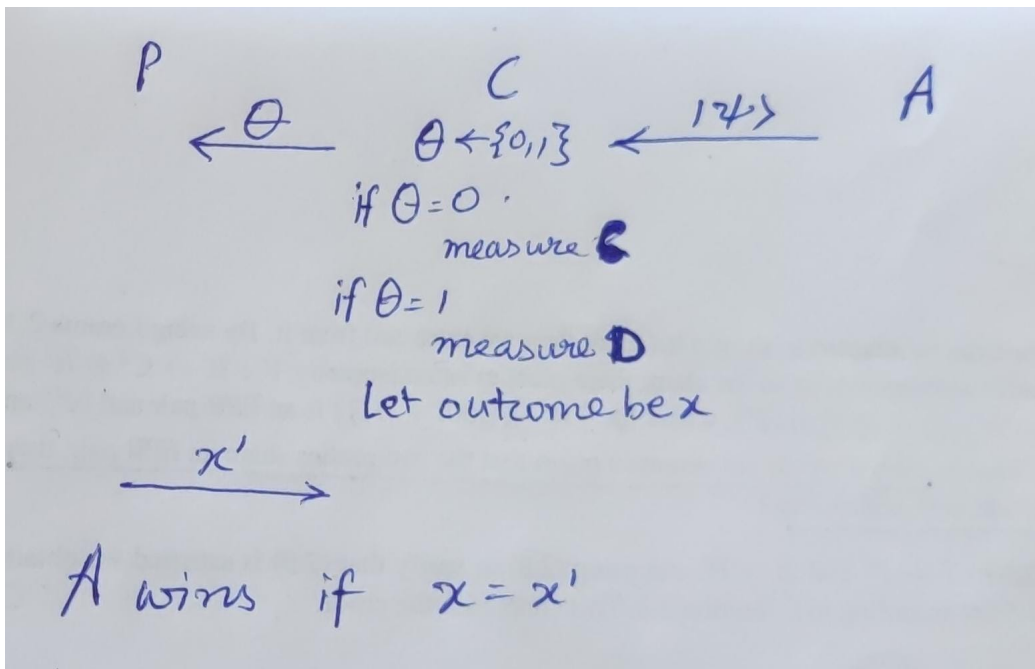 P C A
θ θ←{0,1} |ψ>
if θ=0.
measure C
if θ=1
measure D
Let outcome be x
x'
A wins if x=x'